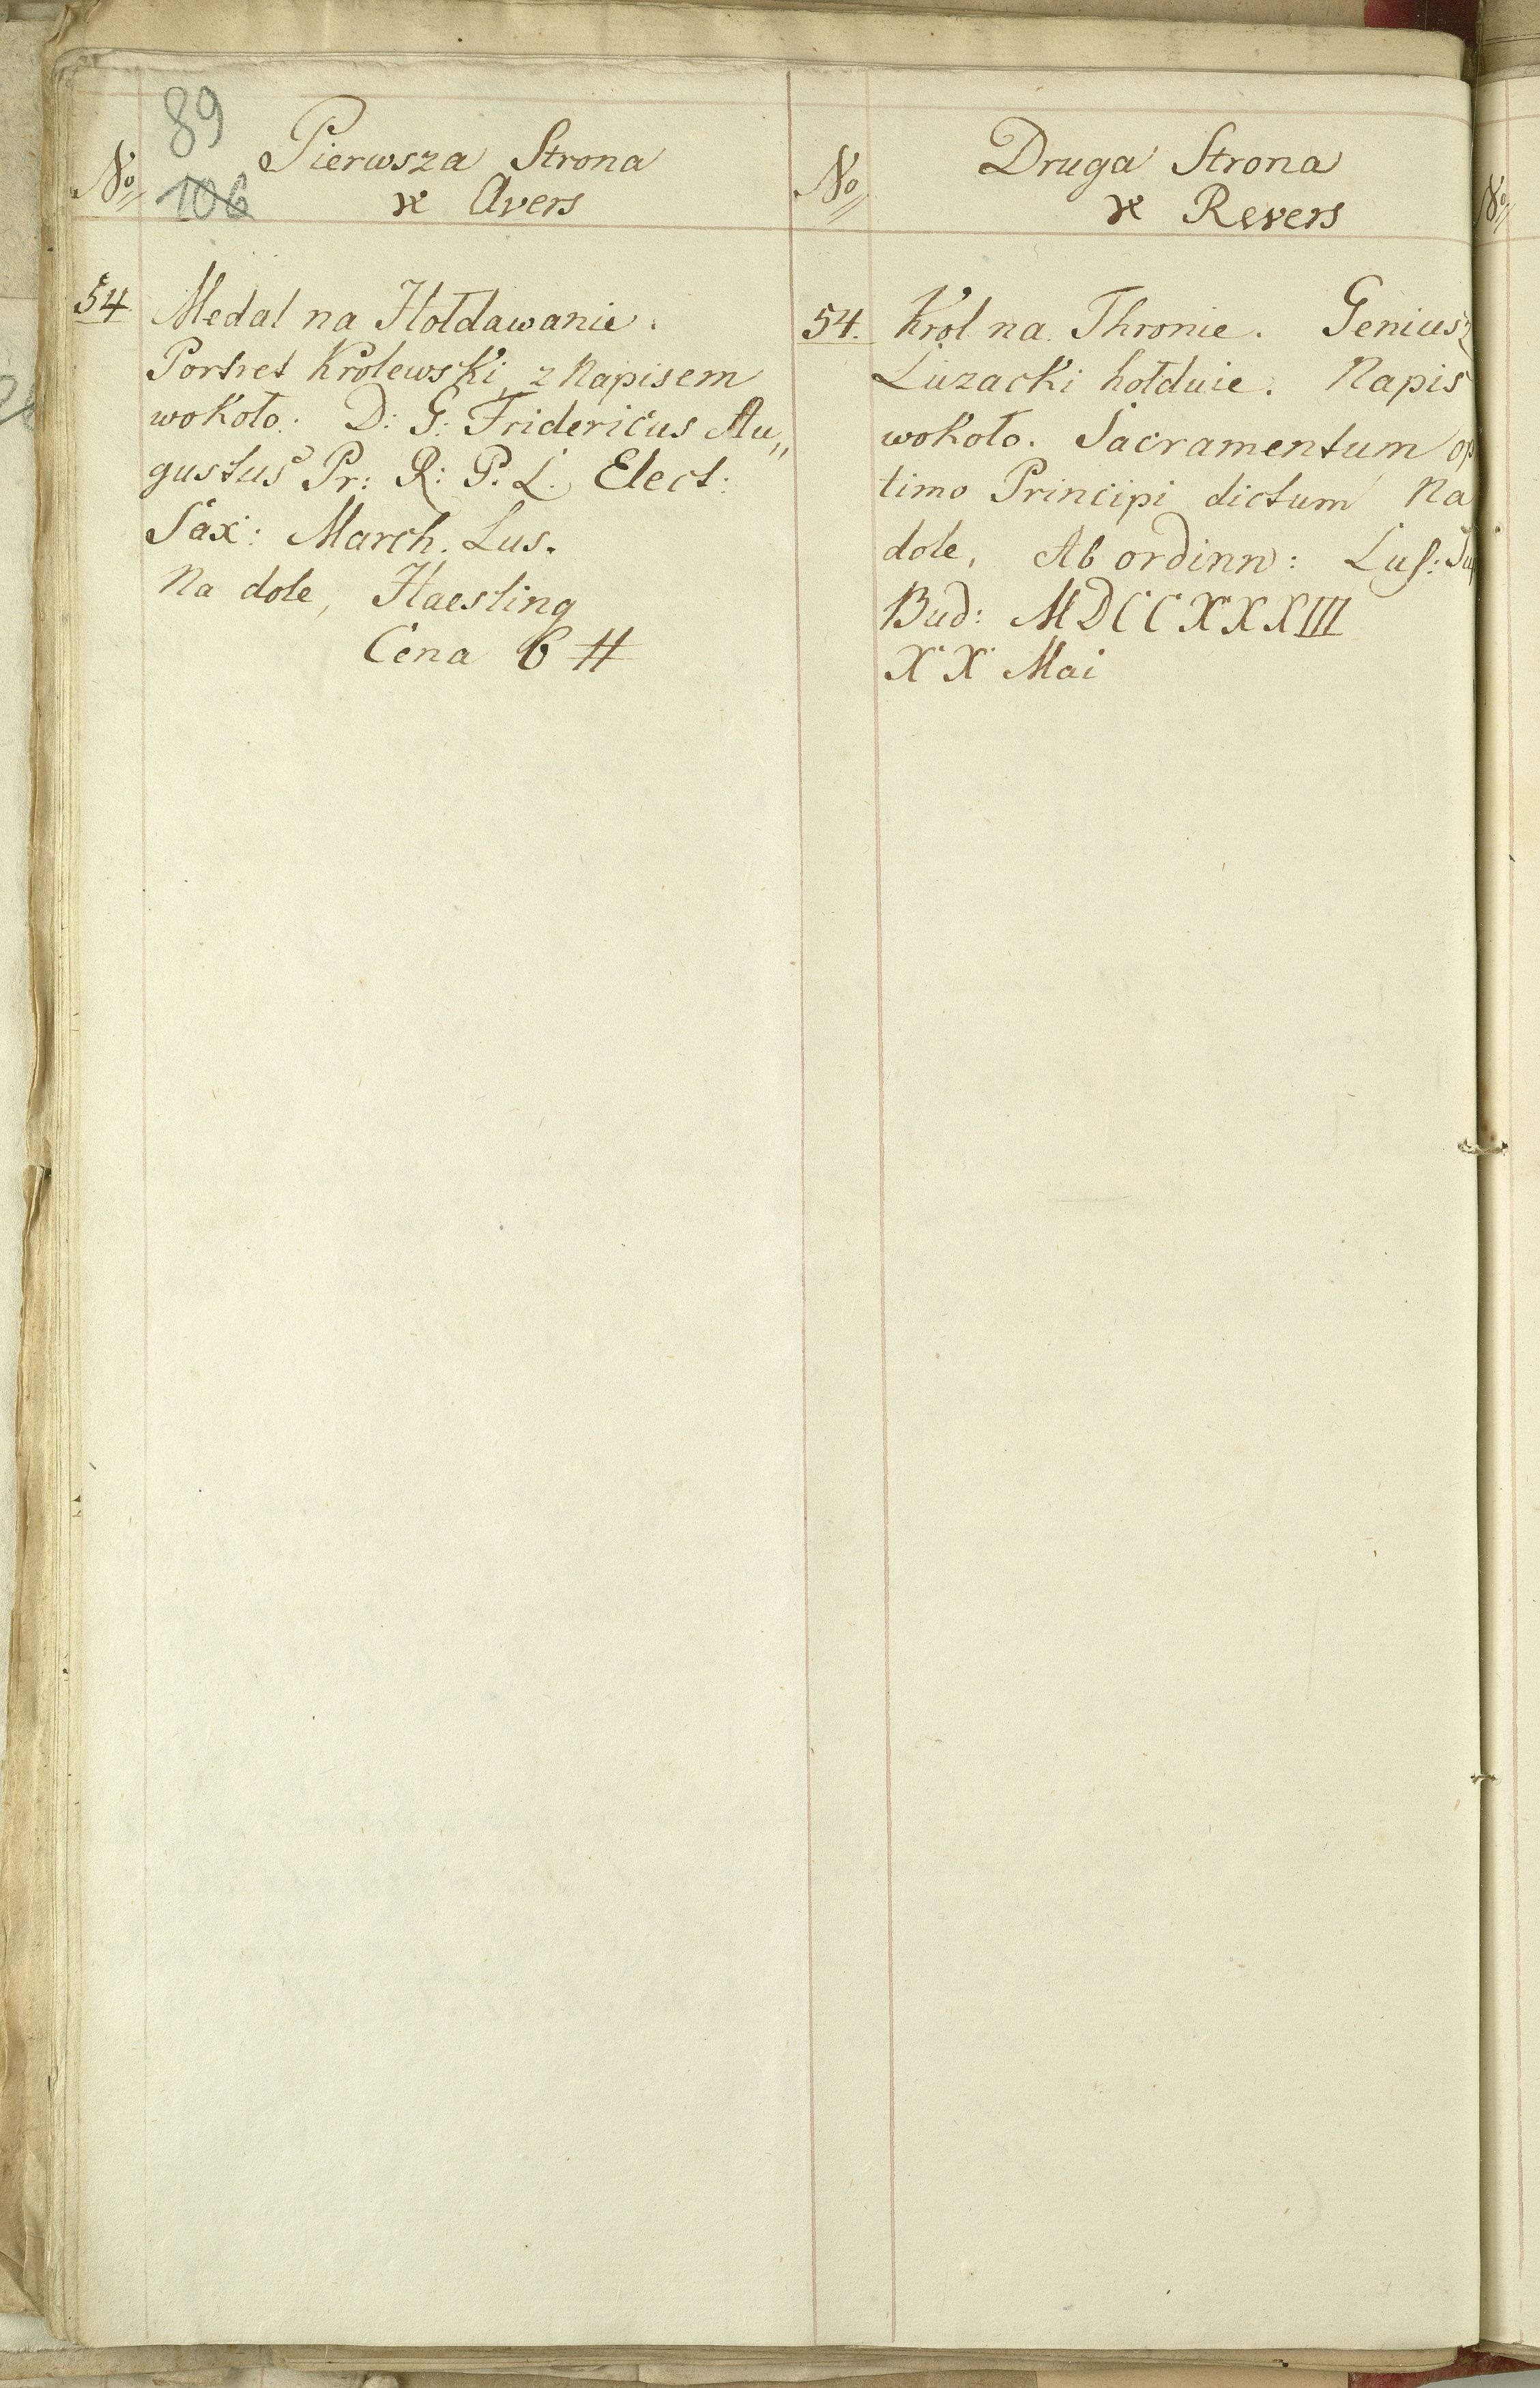 89
106
No Pierwsza Strona
Avers
54 Medal na Hołdawanie.
Portret Krolewski, z Napisem
wokoło: D: G: Fridericus Au,,
gustus Pr: R: P. L. Elect:
Sax: March. Lus.
Na dole, Haesling
Cena 6 #
No Druga Strona
Revers
54. Krol na Thronie. Geniusz
Luzacki hołduie. Napis
wokoło. Sacramentum op
timo Principi dictum Na
dole, Ab ordinn: Lus: Sup
Bud: MDCCXXXIII
XX Mai
No